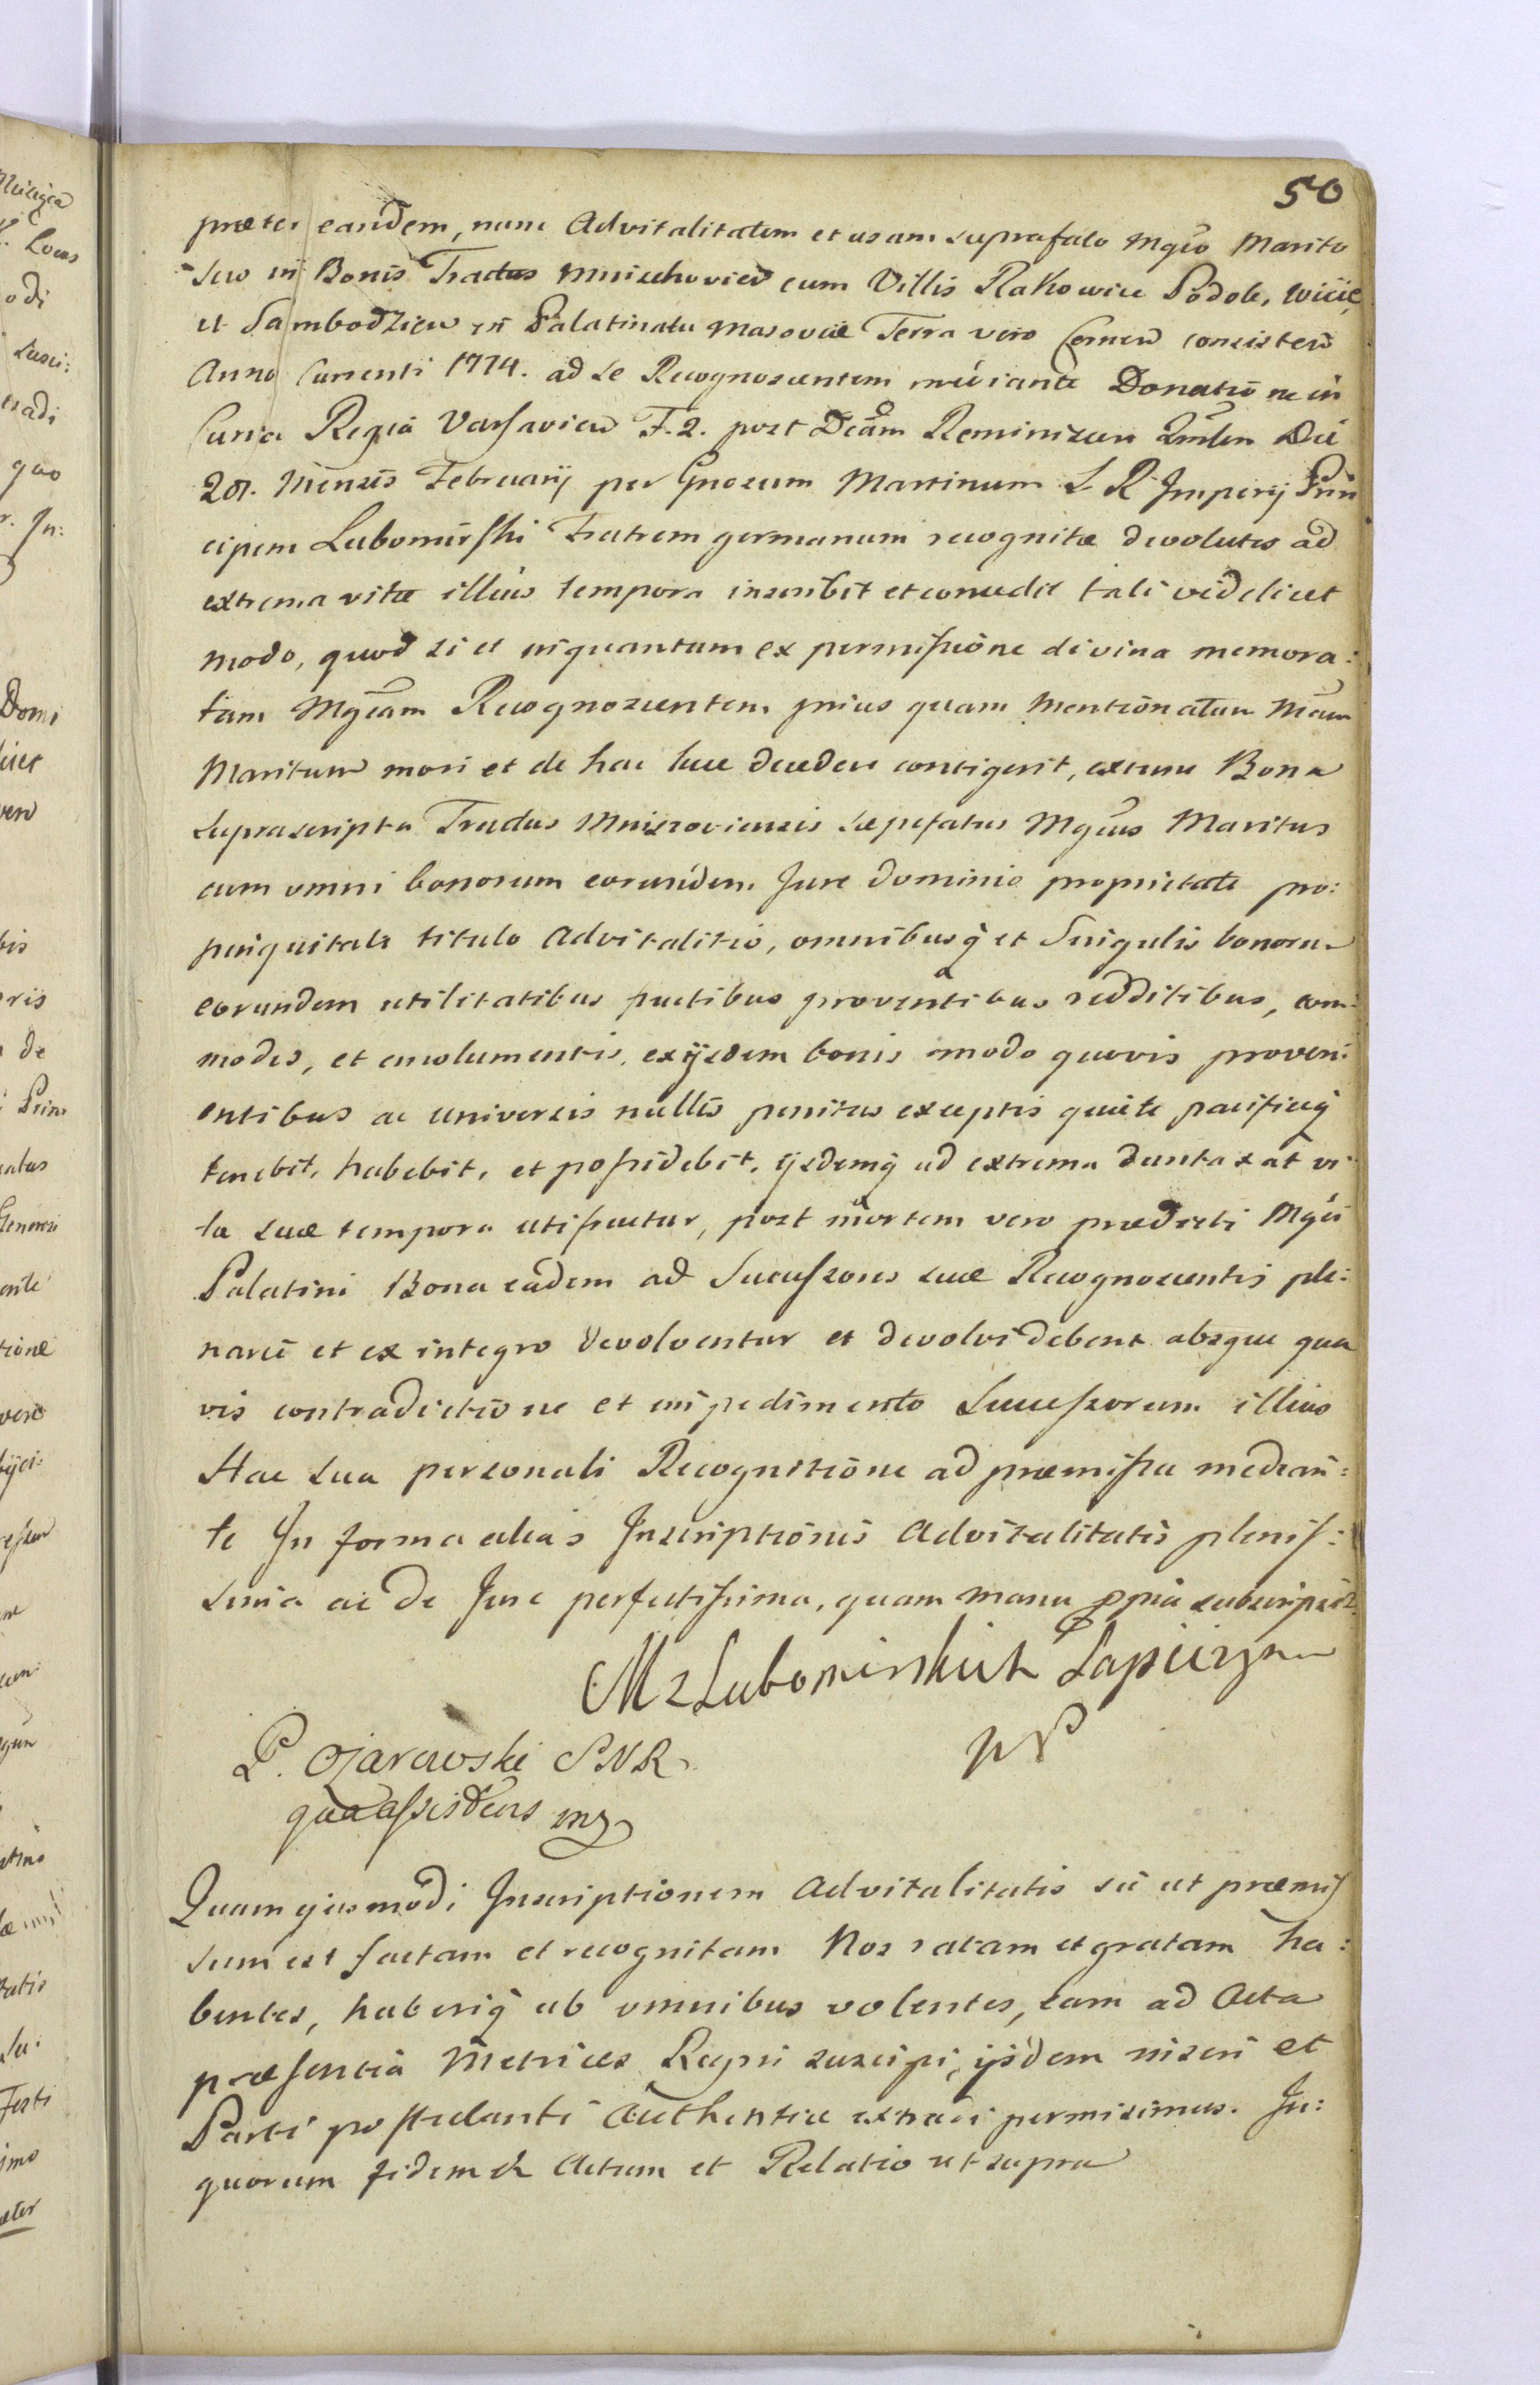 50
præter eandem, nunc Advitalitatem et usum suprafato Mgco Marito
suo in Bonis Tractus Mnischovien cum Villis Rakowice Podole, Wicie,
et Sambodzien in Palatinatu Masoviæ Terra vero Cernen consisten
Anno Currenti 1774. ad se Recognoscentem mediante Donatione in
Curia Regia Varsavien F. 2. post Dcam Reminiscere Qmlem Die
28. Mensis Februarij per Gnosum Martinum S. R. Imperij Prin
cipem Lubomirski Fratrem germanum recognita devolutis ad
extrema vitæ illius tempora inscribit et concedit tali videlicet
modo, quod si et inquantum ex permissione divina memora:
tam Mgcam Recognoscentem prius quam mentionatum Mcum
Maritum mori et de hac luce decedere contigerit, extunc Bona
suprascripta Tractus Mniszoviensis sæpefatus Mgcus Maritus
cum omni bonorum eorundem Jure dominio proprietate pro:
pinquitate titulo Advitalitio, omnibusq et Singulis bonorum
eorundem utilitatibus fructibus proventibus redditibus, com:
modis, et emolumentis, ex ijsdem bonis modo quovis proveni
entibus ac universis nullis penitus exceptis quiete pacificeq
tenebit, habebit, et possidebit, ijsdemq ad extrema duntaxat vi
ta suæ tempora utifruetur, post mortem vero prædicti Mgci
Palatini Bona eadem ad Successores suæ Recognoscentis ple:
narie et ex integro devolventur et devolvi debent absque qua
vis contradictione et impedimento Successorum illius
Hac sua personali Recognitione ad præmissa median:
te In forma alias Inscriptionis Advitalitatis plenis:
sima ac de Jure perfectissima, quam manu ppria subscripsit.
M z Lubomirskich Sapiezyna
P. Ożarowski PNR
qua assidens mp
Quam ejusmodi Inscriptionem Advitalitatis sic ut præmis
sum est factam et recognitam Nos ratam et gratam ha:
bentes, haberiq ab omnibus volentes, eam ad Acta
præsentia Metrices Regni suscipi, ijsdem inseri et
Parti postulanti Authentice extradi permisimus. In:
quorum fidem & Actum et Relatio ut supra